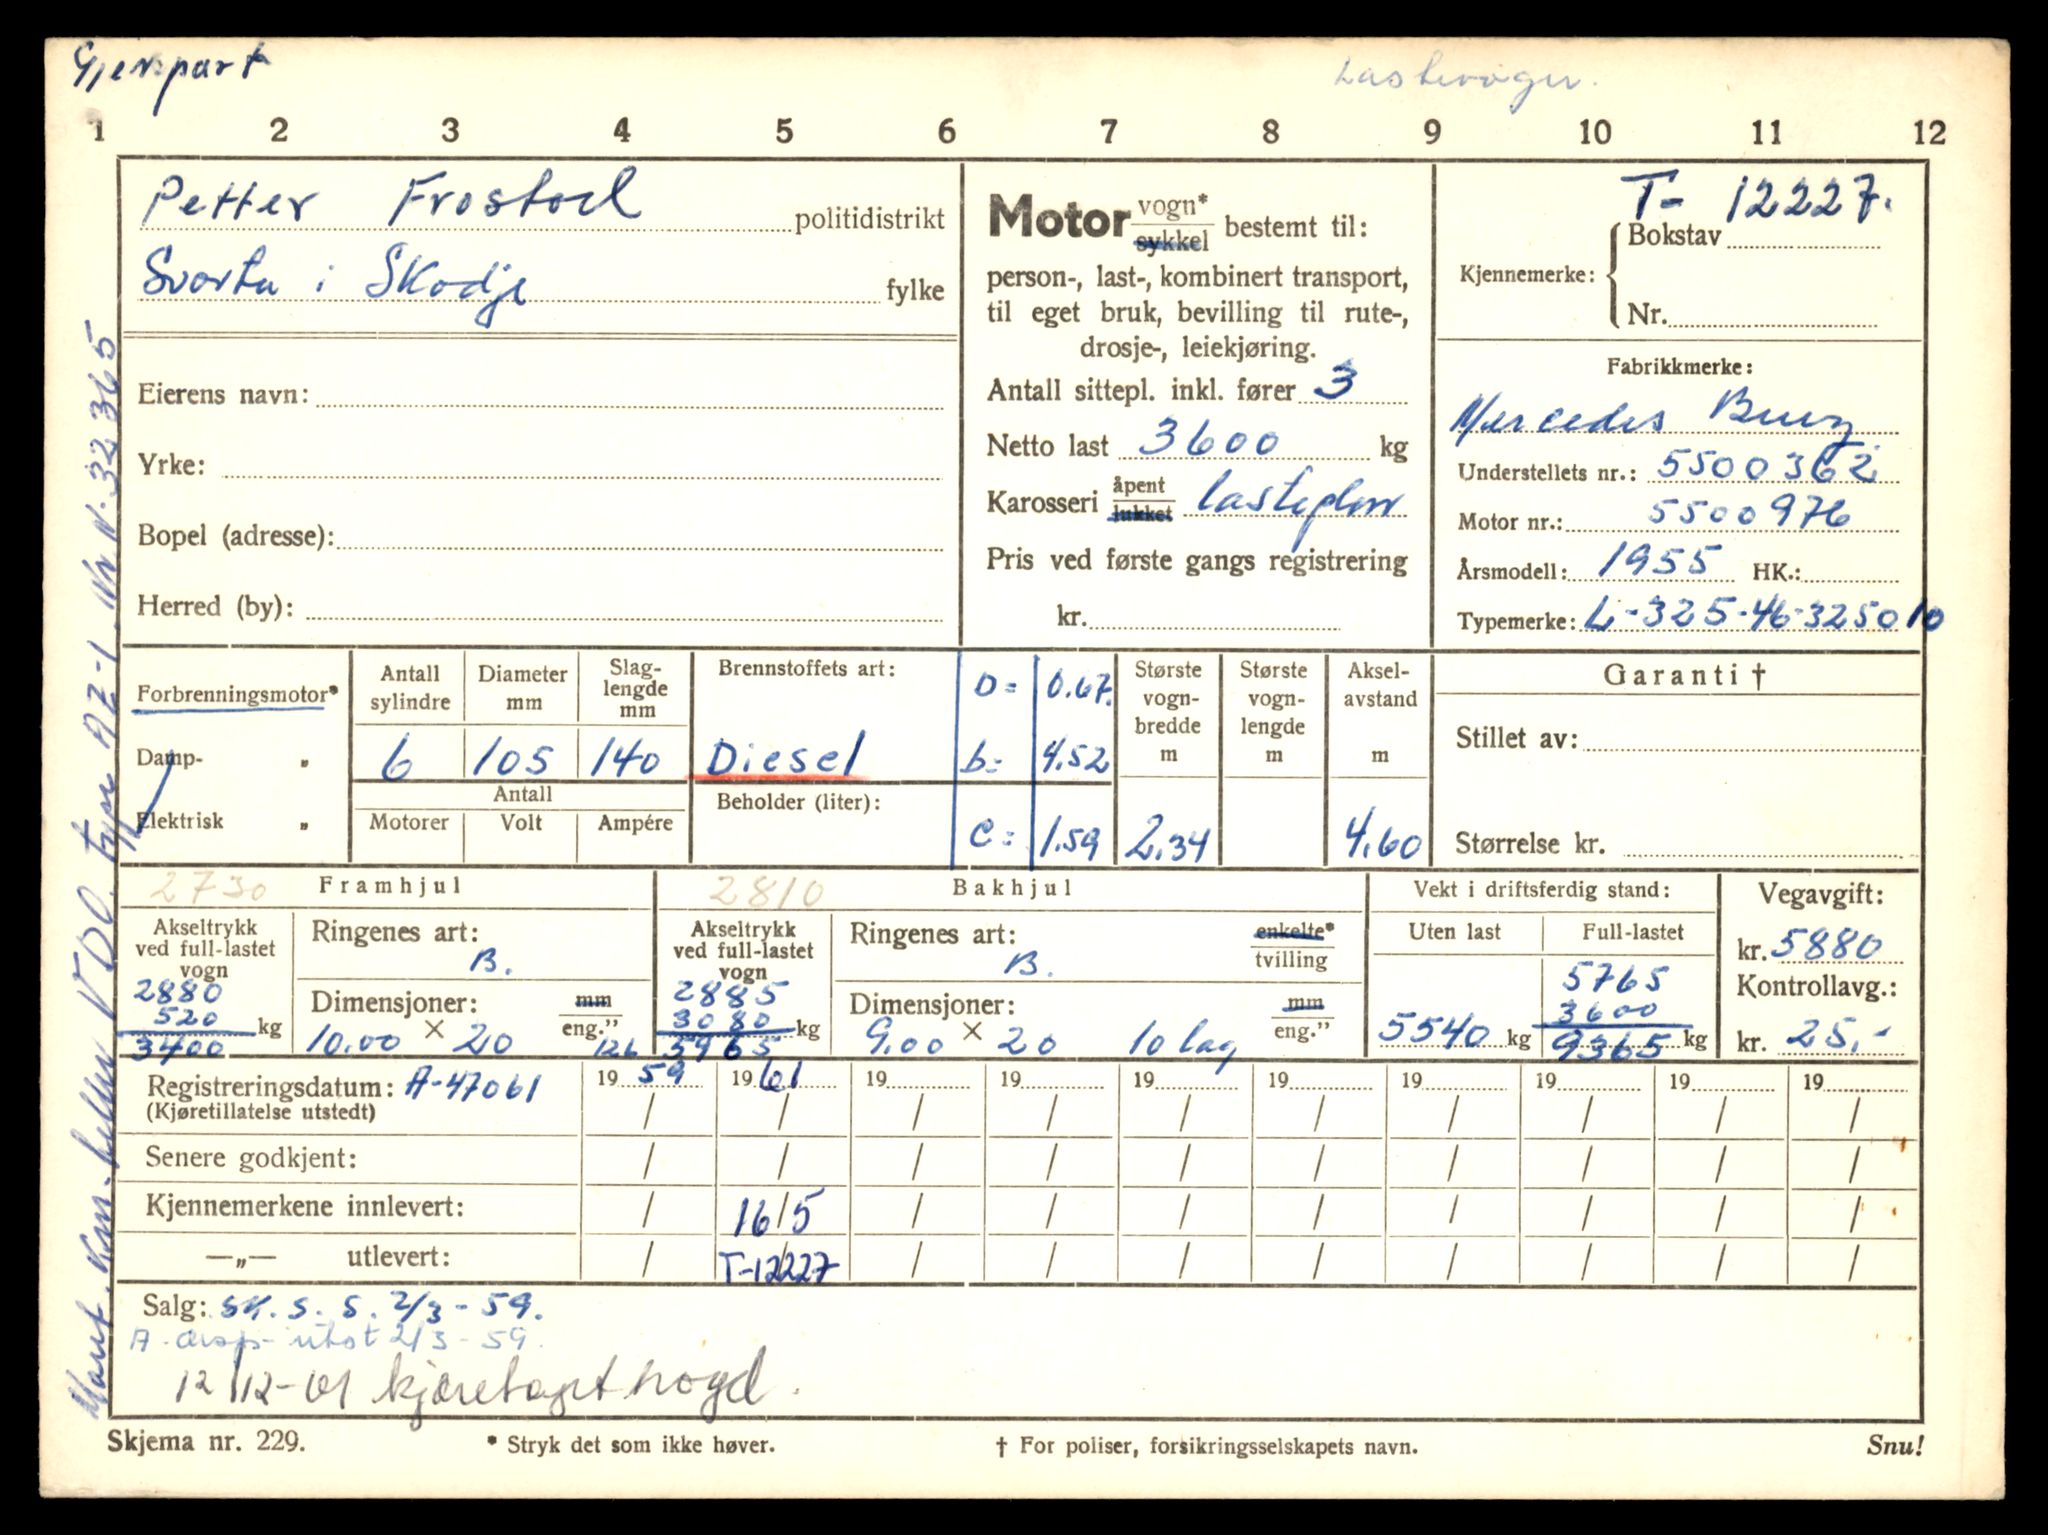 Gjenpart
Lastevogn.
1 2 3 4 5 6 7 8 9 10 11 12
Petter Frostad politidistrikt
Svorta i Skodje fylke
Eierens navn:
Yrke:
Bopel (adresse):
Herred (by):
Motor vogn* sykkel bestemt til:
person-, last-, kombinert transport,
til eget bruk, bevilling til rute-,
drosje-, leiekjøring.
Antall sittepl. inkl. fører 3
Netto last 3600 kg
Karosseri åpent lukket lasteplan
Pris ved første gangs registrering
kr.
T- 12227.
Kjennemerke: Bokstav
Nr.
Fabrikkmerke:
Mercedes Benz
Understellets nr.: 5500362
Motor nr.: 5500976
Årsmodell: 1955 HK.:
Typemerke: L-325-46-325010
Forbrenningsmotor*
Damp- „
Elektrisk „
Antall sylindre 6
Diameter mm 105
Slaglengde mm 140
Antall
Motorer Volt Ampére
Brennstoffets art: Diesel
Beholder (liter):
D = 0.67.
b= 4.52
C= 1.59
Største vogn-bredde m 2.34
Største vogn-lengde m
Aksel-avstand m 4.60
Garanti †
Stillet av:
Størrelse kr.
2730 Framhjul
Akseltrykk ved full-lastet vogn
2880
520 kg
3400
Ringenes art: B.
Dimensjoner: mm eng."
10.00 × 20
126
2810 Bakhjul
Akseltrykk ved full-lastet vogn
2885
3080 kg
5965
Ringenes art: B. enkelte* tvilling
Dimensjoner: mm eng."
9.00 × 20 10 lag
Vekt i driftsferdig stand:
Uten last 5540 kg
Full-lastet
5765
3600
9365 kg
Vegavgift:
kr. 5880
Kontrollavg.:
kr. 25,-
Registreringsdatum: A-47061 19 59 19 61 19 19 19 19 19 19 19 19
(Kjøretillatelse utstedt) / / / / / / / / / /
Senere godkjent: / / / / / / / / / /
Kjennemerkene innlevert: / 16/5 / / / / / / / /
—„— utlevert: / T-12227 / / / / / / / /
Salg: sk. s. s. 2/3 - 59.
A. disp- utst 2/3 - 59.
12/12-61 kjøretøyet hogd.
Skjema nr. 229. * Stryk det som ikke høver. † For poliser, forsikringsselskapets navn. Snu!
Mont. Km.-teller VDO. type AZ-1. Nr. N. 32365